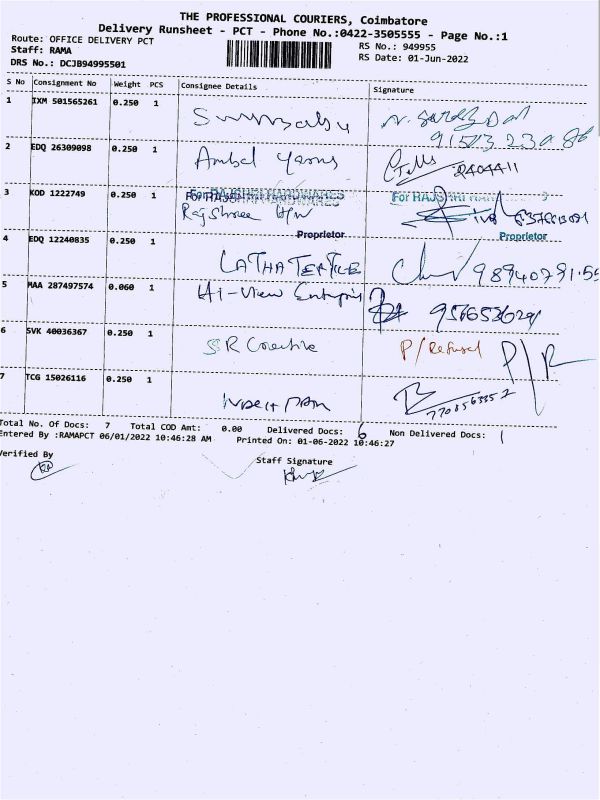 THE PROFESSIONAL COURIERS, Coimbatore
Delivery Runsheet - PCT - Phone No.:0422-3505555 - Page No.:1
Route: OFFICE DELIVERY PCT
RS No.: 949955
Staff: RAMA
RS Date: 01-Jun-2022
DRS No.: DCJB94995501
S No Consignment No Weight PCS Consignee Details Signature
1 IXM 501565261 0.250 1
2 EDQ 26309098 0.250 1 Ambal Yarns
2404411
3 KOD 1222749 0.250 1 For RAJSHRI HARDWARES For RAJSHRI HAR
Rajshree H/W
Proprietor Proprietor
4 EDQ 12240835 0.250 1
LATHA TEXTILE 9894079155
5 MAA 287497574 0.060 1 Hi-View
6 SVK 40036367 0.250 1 S R P/Refused P/R
7 TCG 15026116 0.250 1
7708563352
Total No. Of Docs: 7 Total COD Amt: 0.00 Delivered Docs: 6 Non Delivered Docs: 1
Entered By :RAMAPCT 06/01/2022 10:46:28 AM Printed On: 01-06-2022 10:46:27
Verified By
Staff Signature